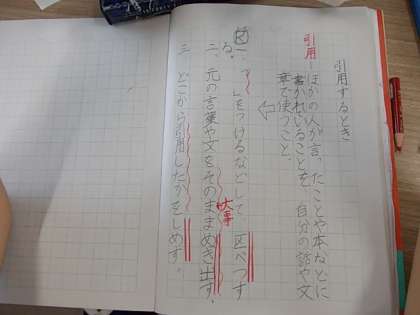 引用するとき
引用－ほかの人が言ったことや本などに
書かれいることを、自分の話や文
章で使うこと。
一、「　」をつけるなどして、区べつす
る。
二、元の言葉や文をそのままぬき出す。
大事
三　どこから引用したかをしめす。